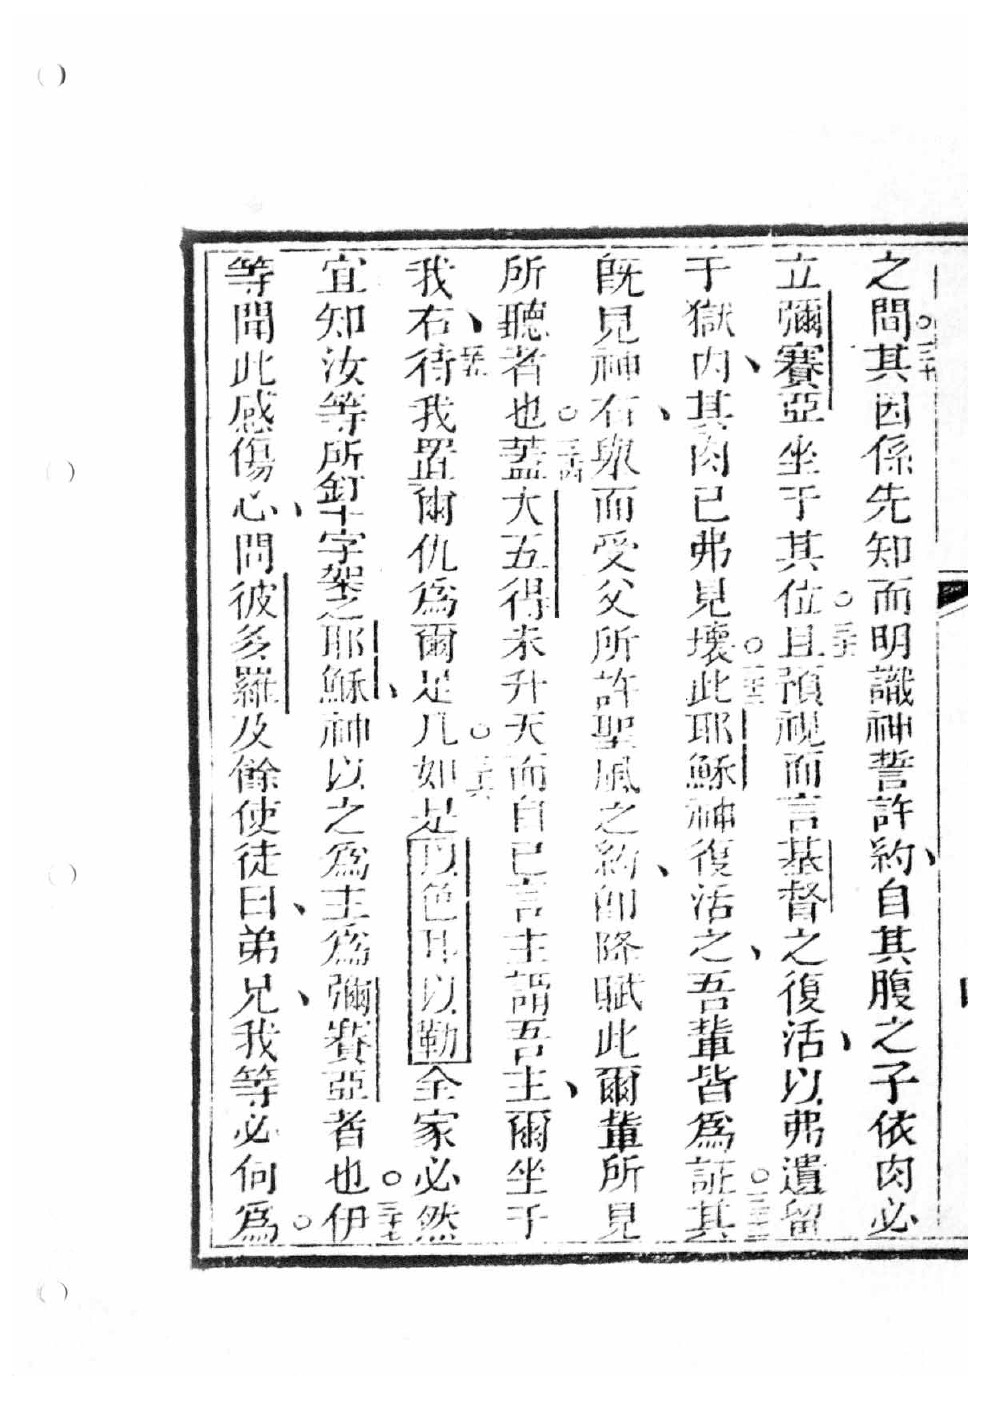 之問其因係先知而明識神誓許約自其腹之子依肉必
立彌賽亞坐于其位且預視而言基督之復活以弗遺留
于獄內其肉已弗見壞此耶穌神復活之吾輩皆爲証其
旣見神右舉而受父所許聖風之約卽降賦此爾輩所見
所聽者也蓋大五得未升天而自已言主謂吾主爾坐于
我右待我置爾仇爲爾足几如是以色耳以勒全家必然
宜知汝等所釘十字架之耶穌神以之爲主爲彌賽亞者也伊
等聞此感傷心問彼多羅及餘使徒曰弟兄我等必何爲